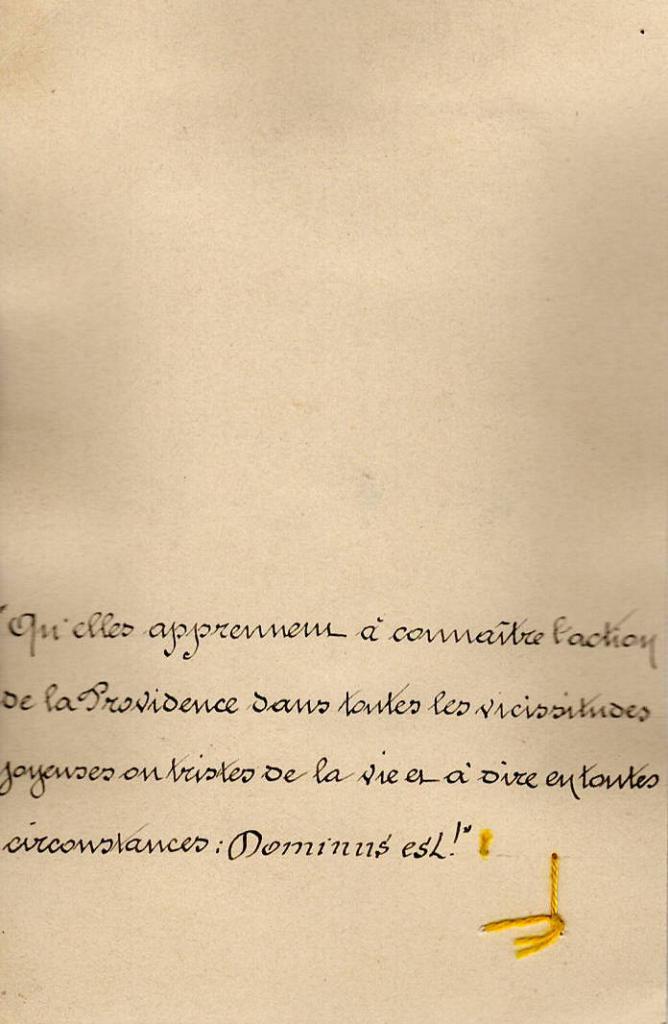 "Qu'elles apprennent à connaître l'action
de la Providence dans toutes les vicissitudes
joyeuses ou tristes de la vie et à dire en toutes
circonstances : Dominus est !"